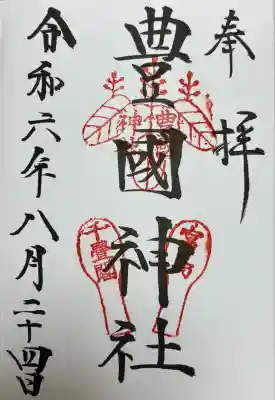 奉拝
豊國神社
令和六年八月二十四日
千畳閣
宮島